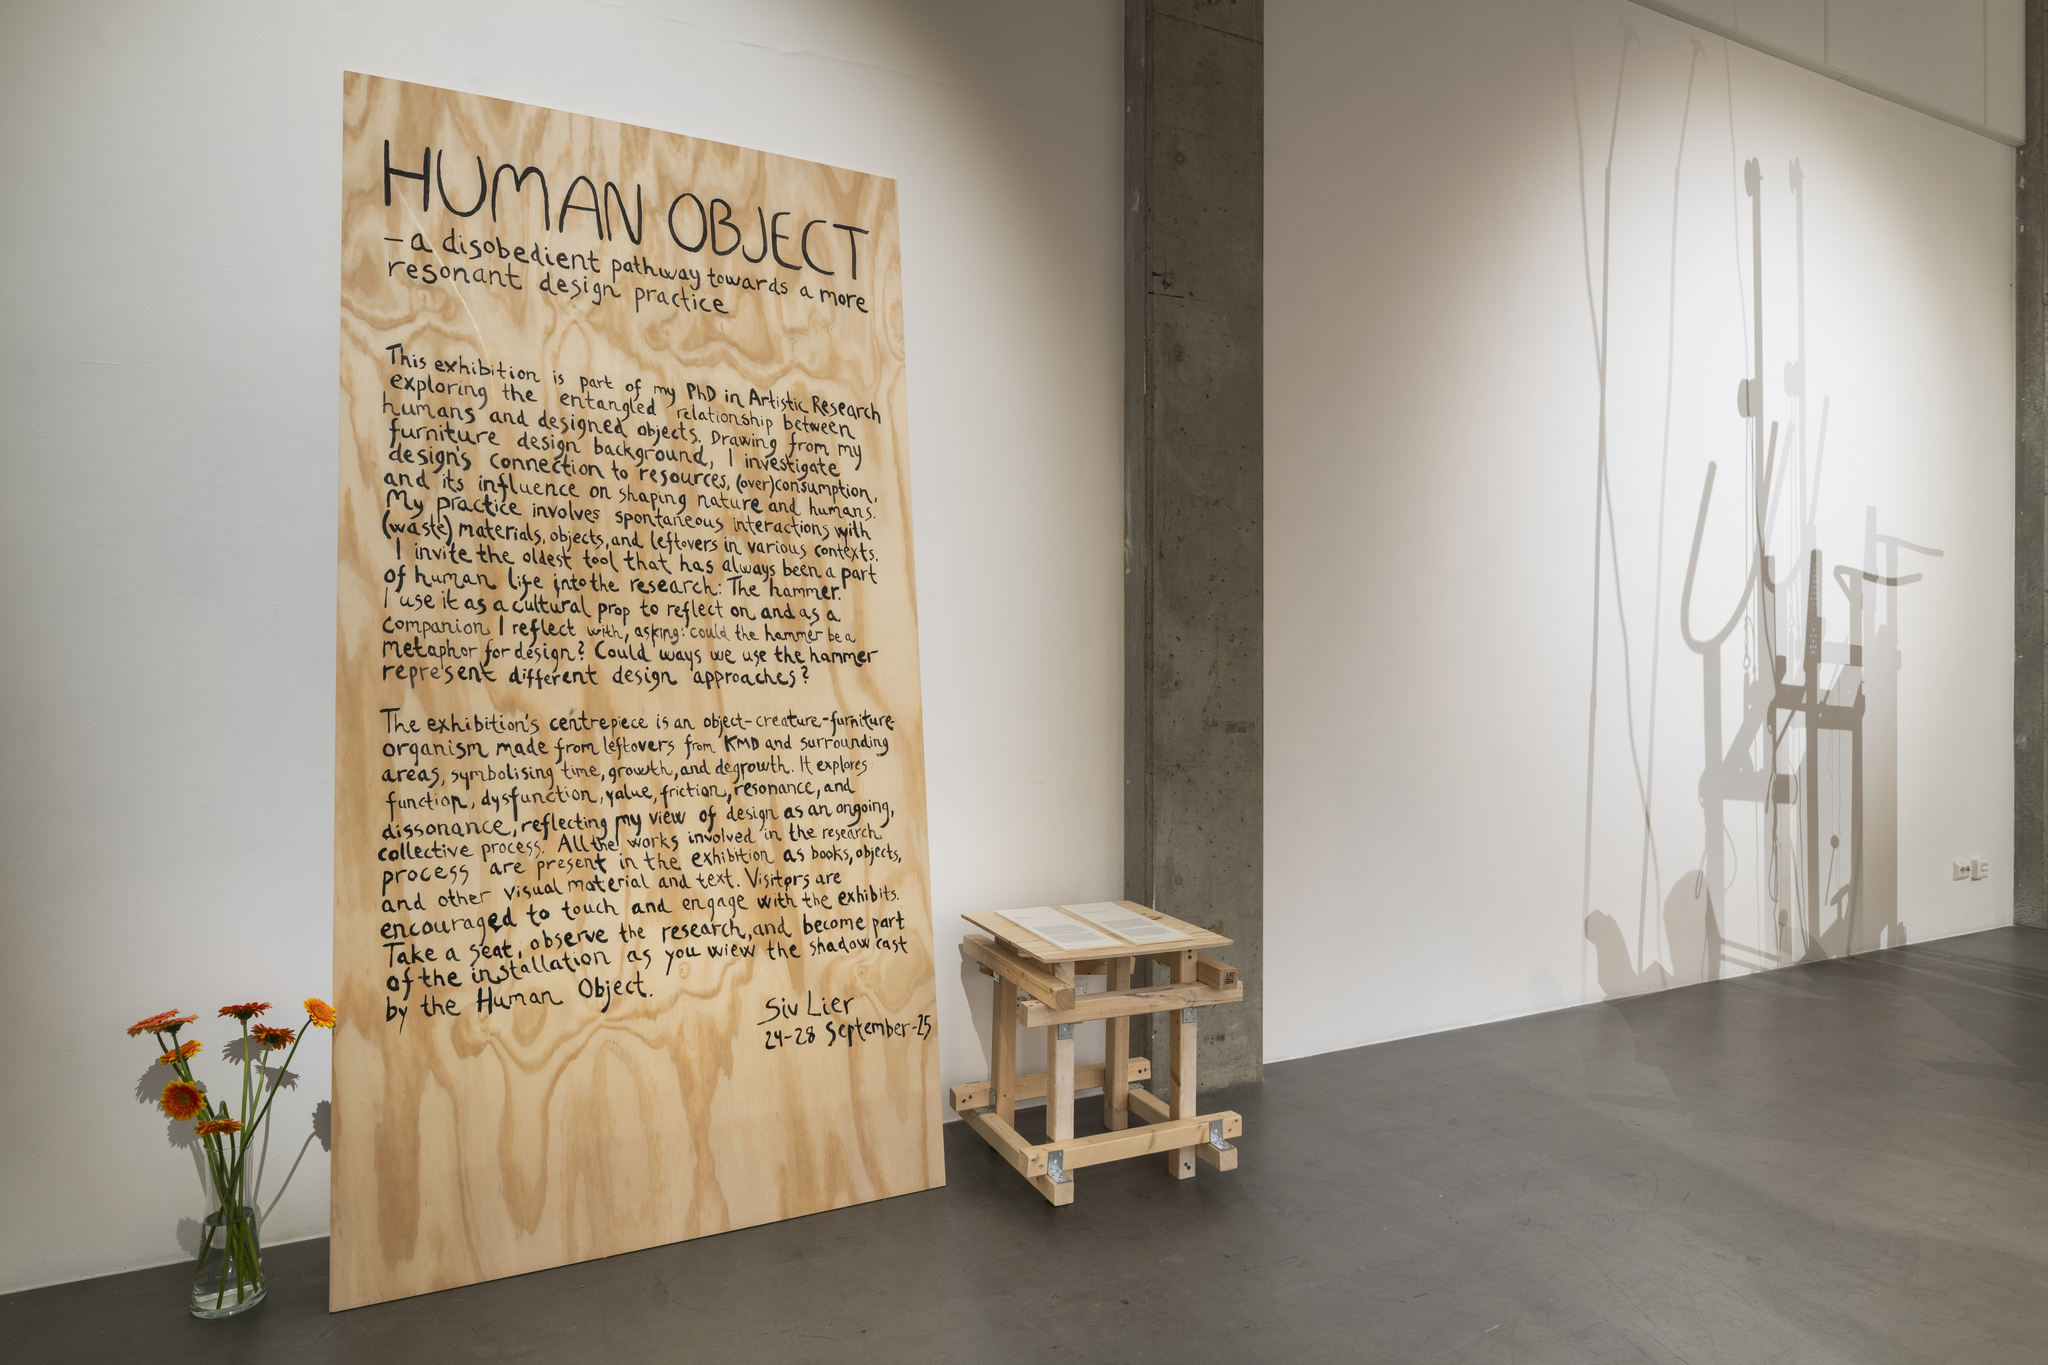 HUMAN OBJECT
- a disobedient pathway towards a more
resonant design practice
This exhibition is part of my PhD in Artistic Research
exploring the entangled relationship between
humans and designed objects. Drawing from my
furniture design background, I investigate
design's connection to resources, (over)consumption,
and its influence on shaping nature and humans.
My practice involves spontaneous interactions with
(waste) materials, objects, and leftovers in various contexts.
I invite the oldest tool that has always been a part
of human life into the research: The hammer.
I use it as a cultural prop to reflect on and as a
companion I reflect with, asking: could the hammer be a
metaphor for design? Could ways we use the hammer
represent different design approaches?
The exhibition's centrepiece is an object-creature-furniture-
organism made from leftovers from KMD and surrounding
areas, symbolising time, growth, and degrowth. It explores
function, dysfunction, value, friction, resonance, and
dissonance, reflecting my view of design as an ongoing,
collective process. All the works involved in the research
process are present in the exhibition as books, objects,
and other visual material and text. Visitors are
encouraged to touch and engage with the exhibits.
Take a seat, observe the research, and become part
of the installation as you wiew the shadow cast
by the Human Object.
Siv Lier
24-28 September-25